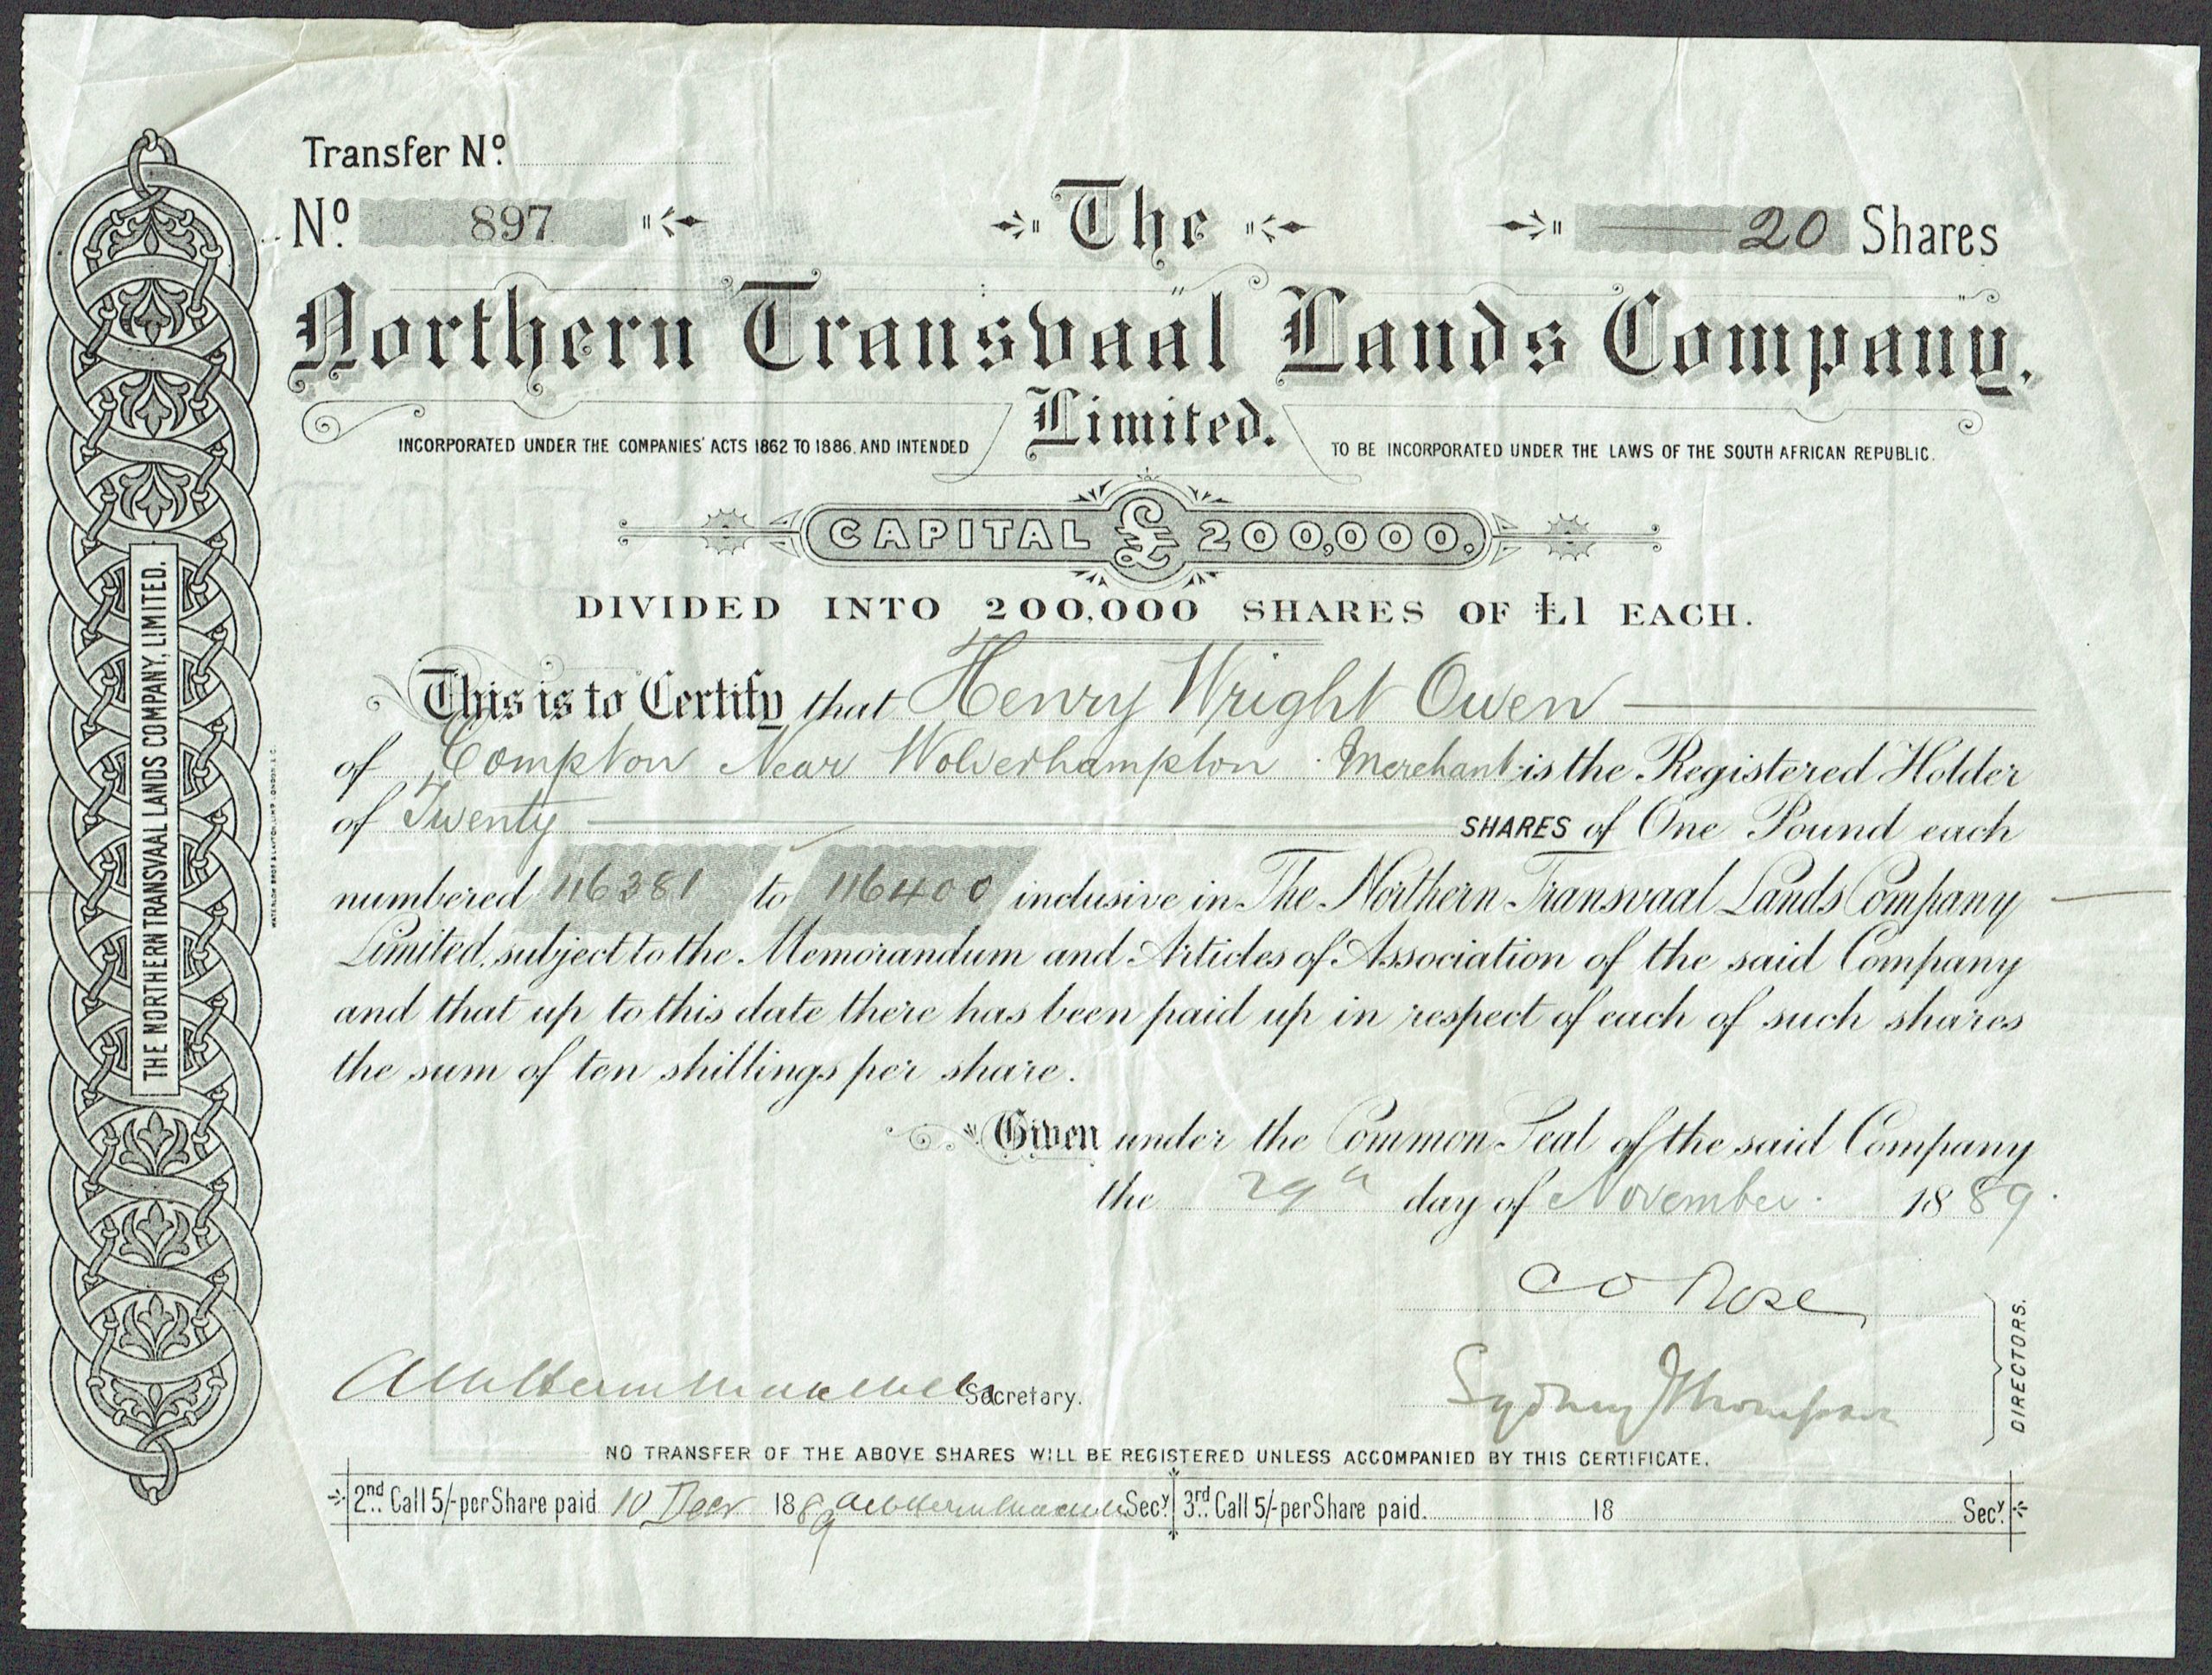 Transfer No.
No. 897
The
20 Shares
Northern Transvaal Lands Company,
Limited.
INCORPORATED UNDER THE COMPANIES' ACTS 1862 TO 1886, AND INTENDED TO BE INCORPORATED UNDER THE LAWS OF THE SOUTH AFRICAN REPUBLIC.
CAPITAL £200,000.
DIVIDED INTO 200,000 SHARES OF £1 EACH.
This is to Certify that Henry Wright Owen
of Compton Near Wolverhampton Merchant is the Registered Holder
of Twenty SHARES of One Pound each
numbered 116381 to 116400 inclusive in The Northern Transvaal Lands Company
Limited, subject to the Memorandum and Articles of Association of the said Company
and that up to this date there has been paid up in respect of each of such shares
the sum of ten shillings per share.
Given under the Common Seal of the said Company
the 29th day of November 1889.
C O Rose
Sydney J Thompson
DIRECTORS.
Secretary.
NO TRANSFER OF THE ABOVE SHARES WILL BE REGISTERED UNLESS ACCOMPANIED BY THIS CERTIFICATE.
2nd. Call 5/- per Share paid 10 Decr 1889 Secy. 3rd. Call 5/- per Share paid. 18 Secy.
THE NORTHERN TRANSVAAL LANDS COMPANY, LIMITED.
WATERLOW BROS & LAYTON, LIMD. LONDON, E.C.